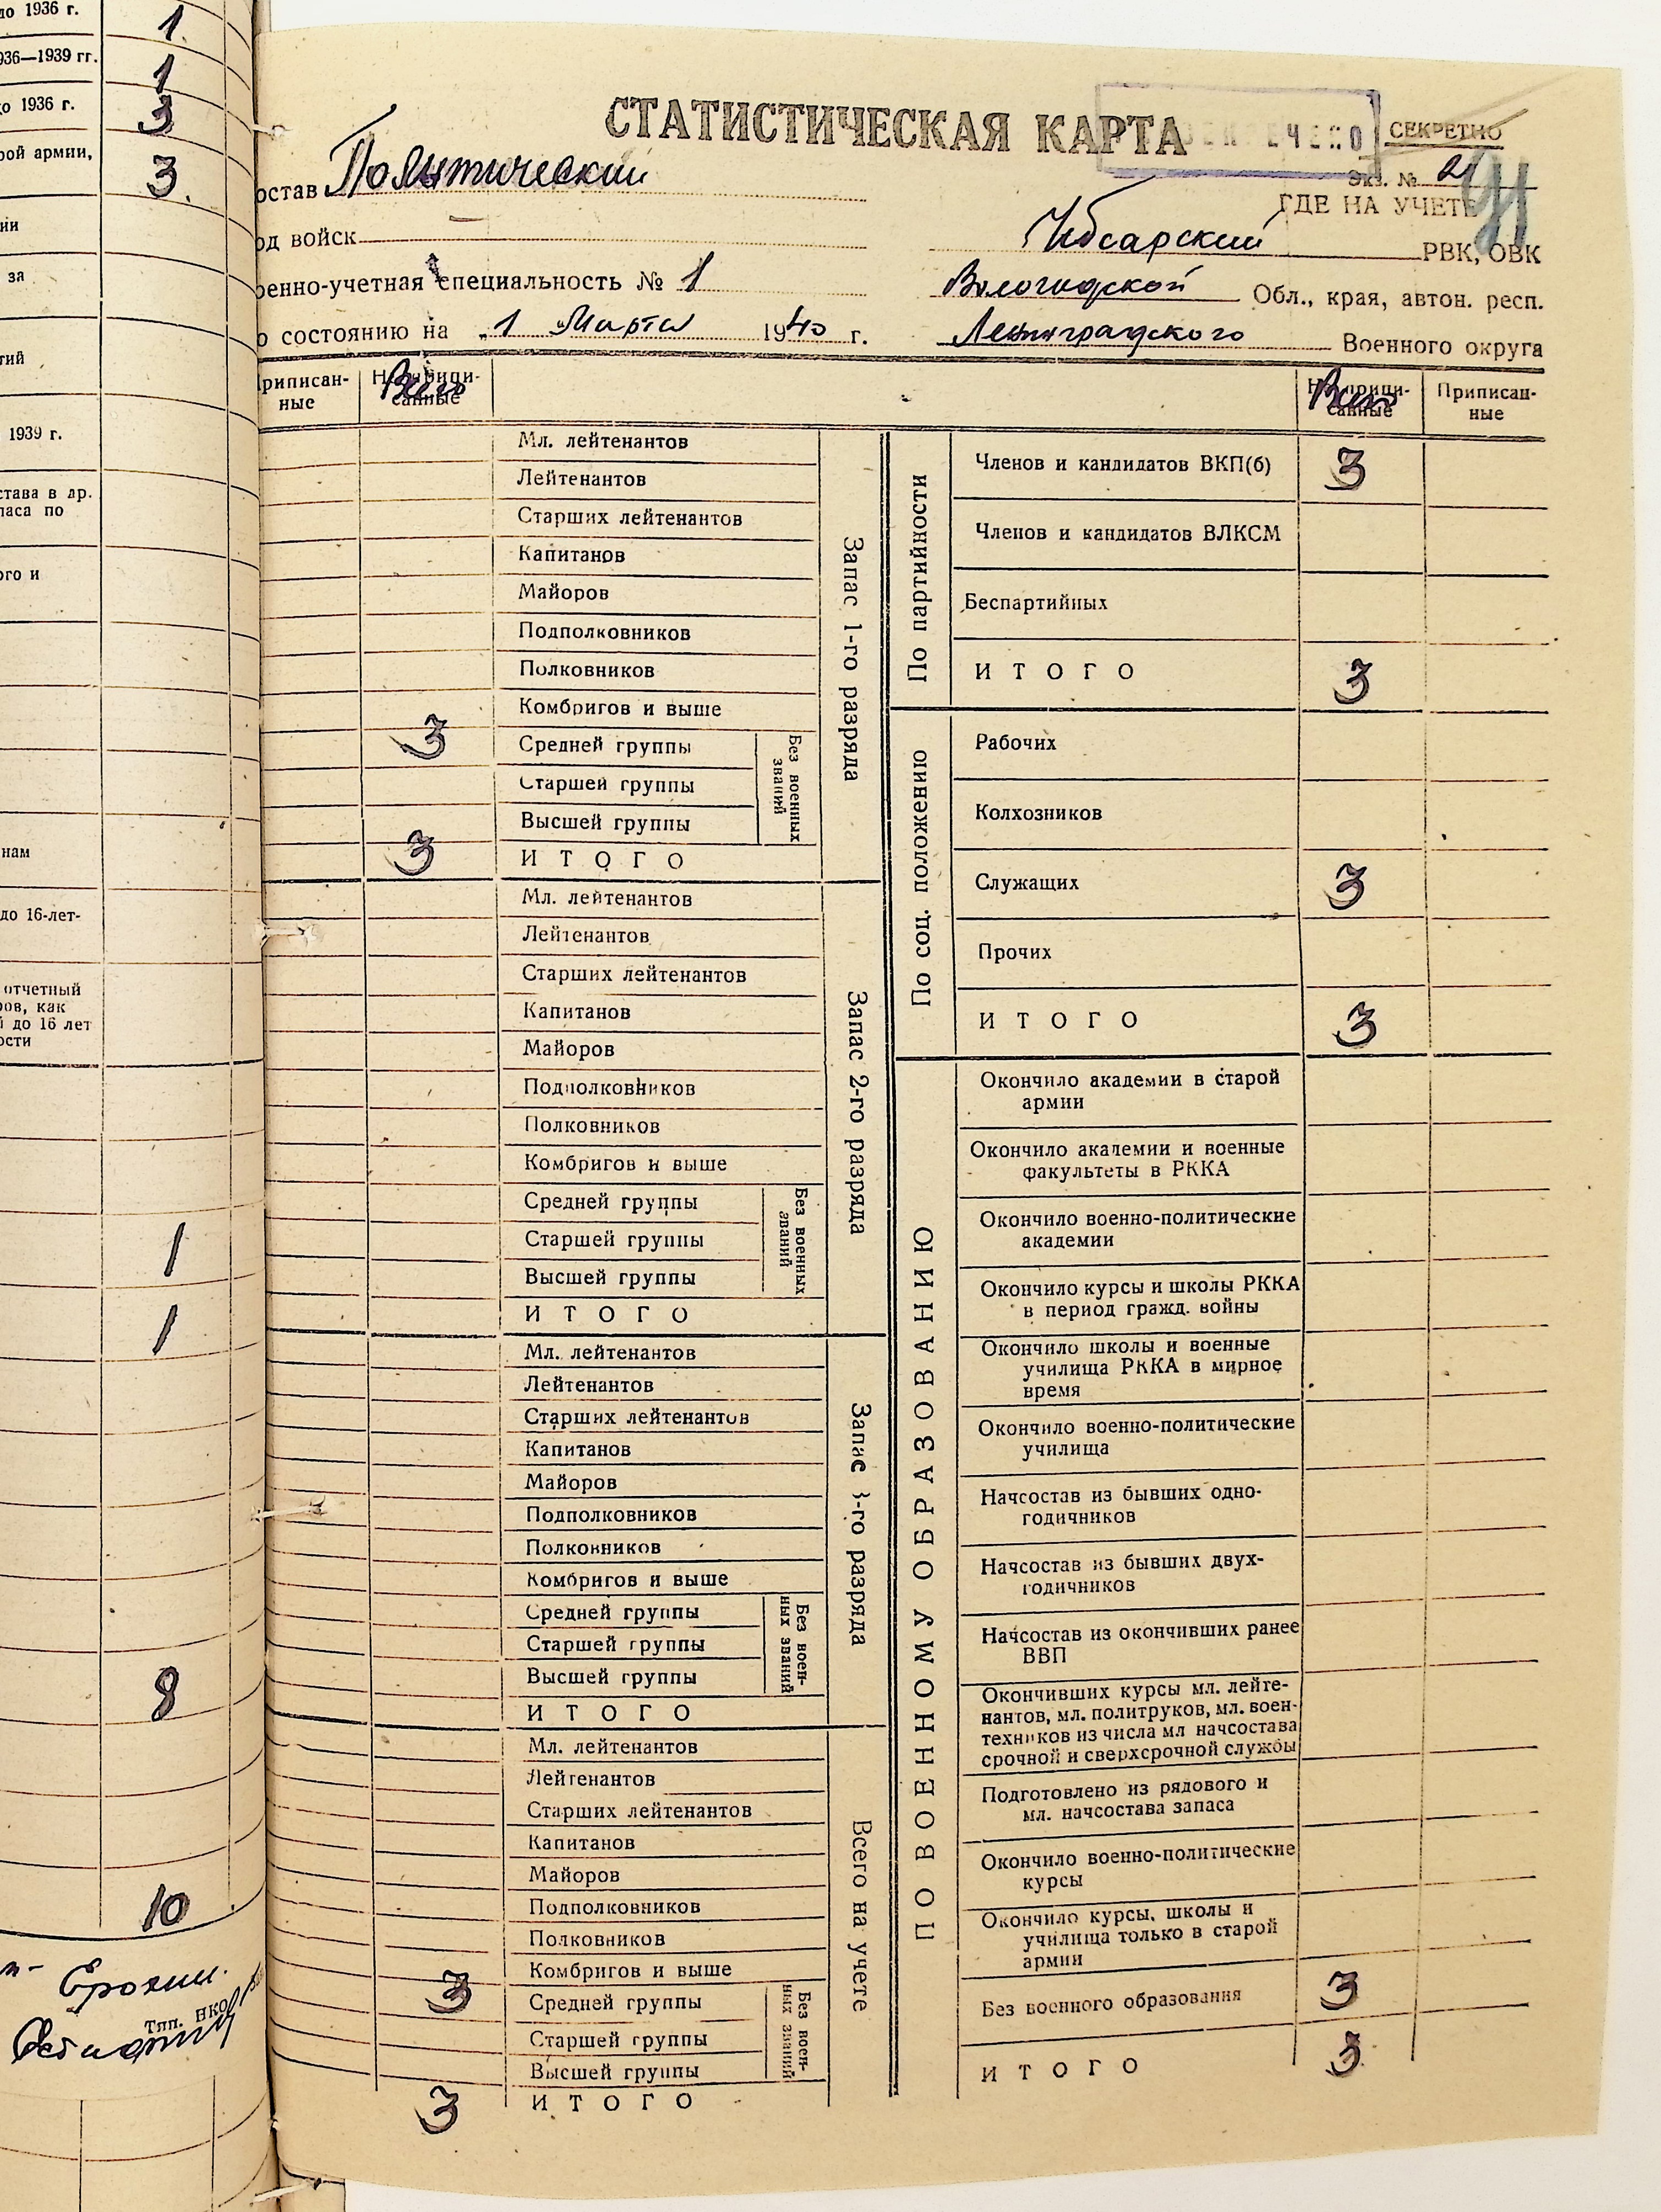 до 1936 г. 1
936—1939 гг. 1
до 1936 г. 3
рой армии, 3.
ии
за
тий
1939 г.
става в др.
паса по
ого и
нам
до 16-лет-
отчетный
ров, как
й до 16 лет
ости
1
1
8
10
Ерохин.
Тип. НКО
СТАТИСТИЧЕСКАЯ КАРТА
СЕКРЕТНО
Экз. № 2
91
остав Политический
ГДЕ НА УЧЕТЕ
од войск
Чебсарский РВК, ОВК
оенно-учетная специальность № 1
Вологодской Обл., края, автон. респ.
о состоянию на „1 Марта 1940 г.
Ленинградского Военного округа
Приписан-
ные
Неприпи-
санные
Всего
Неприпи-
санные
Всего
Приписан-
ные
Запас 1-го разряда
Мл. лейтенантов
Лейтенантов
Старших лейтенантов
Капитанов
Майоров
Подполковников
Полковников
Комбригов и выше
Без военных
званий
3 Средней группы
Старшей группы
Высшей группы
3 ИТОГО
Запас 2-го разряда
Мл. лейтенантов
Лейтенантов
Старших лейтенантов
Капитанов
Майоров
Подполковников
Полковников
Комбригов и выше
Без военных
званий
Средней группы
Старшей группы
Высшей группы
ИТОГО
Запас 3-го разряда
Мл. лейтенантов
Лейтенантов
Старших лейтенантов
Капитанов
Майоров
Подполковников
Полковников
Комбригов и выше
Без воен-
ных званий
Средней группы
Старшей группы
Высшей группы
ИТОГО
Всего на учете
Мл. лейтенантов
Лейтенантов
Старших лейтенантов
Капитанов
Майоров
Подполковников
Полковников
Комбригов и выше
Без воен-
ных званий
3 Средней группы
Старшей группы
Высшей группы
3 ИТОГО
По партийности
Членов и кандидатов ВКП(б) 3
Членов и кандидатов ВЛКСМ
Беспартийных
ИТОГО 3
По соц. положению
Рабочих
Колхозников
Служащих 3
Прочих
ИТОГО 3
ПО ВОЕННОМУ ОБРАЗОВАНИЮ
Окончило академии в старой
армии
Окончило академии и военные
факультеты в РККА
Окончило военно-политические
академии
Окончило курсы и школы РККА
в период гражд. войны
Окончило школы и военные
училища РККА в мирное
время
Окончило военно-политические
училища
Начсостав из бывших одно-
годичников
Начсостав из бывших двух-
годичников
Начсостав из окончивших ранее
ВВП
Окончивших курсы мл. лейте-
нантов, мл. политруков, мл. воен-
техников из числа мл начсостава
срочной и сверхсрочной службы
Подготовлено из рядового и
мл. начсостава запаса
Окончило военно-политические
курсы
Окончило курсы, школы и
училища только в старой
армии
Без военного образования 3
ИТОГО 3